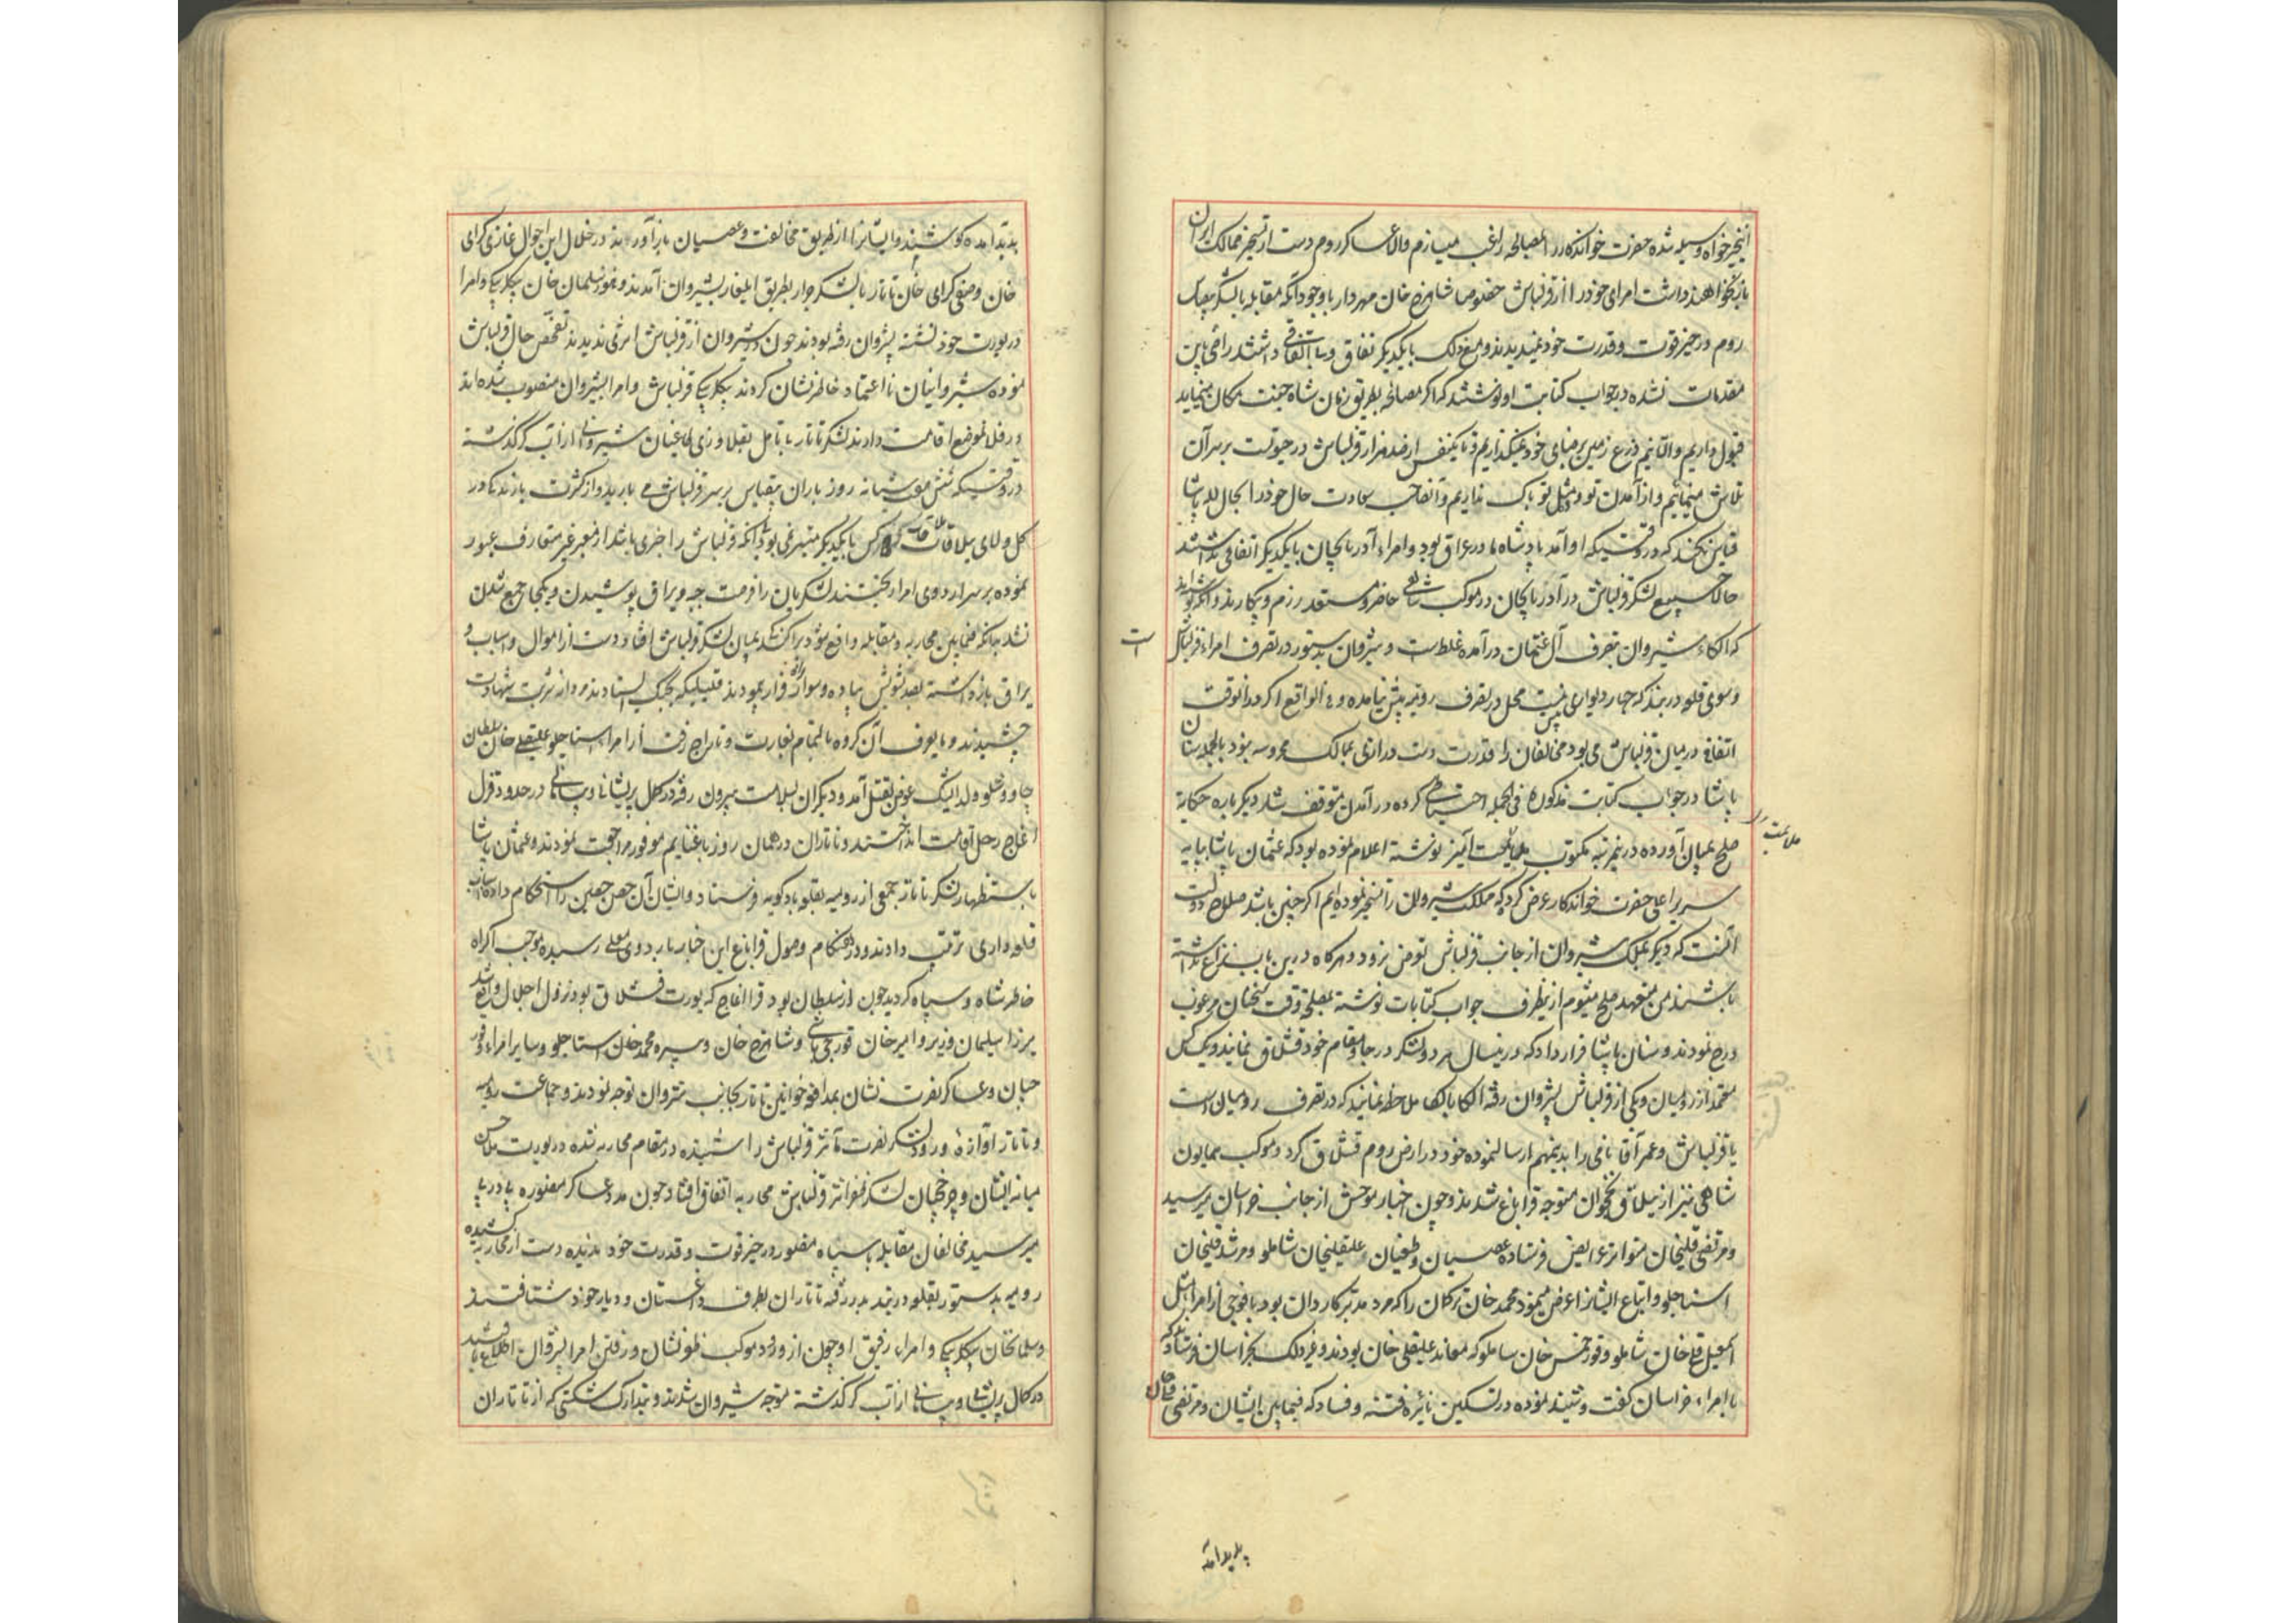 اینخیرخواه وسیله شده حضرت خواندکار را بمصالحه راغب میسازم والا عساکر روم دست از تسخیر ممالک ایران
باز نخواهند داشت امرای خود را از قزلباش خصوصا شاهرخ خان مهردار با وجود آنکه مقابله با لشکر بیقیاس
روم در حیز قوت و قدرت خود نمیدیدند و مع ذلک با یکدیگر نفاق و بی اتفاقی داشتند راضی باین
مقدمات نشده در جواب کتابت او نوشتند که اگر مصالحه بطریق زمان شاه جنت مکان مینماید
قبول داریم والا نیم ذرع زمین برضای خود نمیگذاریم و تا یکنفس از صد هزار قزلباش در حیوتست بر سر آن
تلاش مینمائیم و از آمدن تو و مثل تو باک نداریم و آنصاحب سعادت حال خود را بحال لله پاشا
قیاس نکند که در وقتیکه او آمد پادشاه ما در عراق بود و امراء آذربایجان با یکدیگر اتفاقی نداشتند
حالا جمیع لشکر قزلباش در آذربایجان در موکب شاهی حاضر و مستعد رزم و پیکارند و آنکه نوشته اند
که الکاء شیروان بتصرف آل عثمان درآمده غلط است و شیروان بدستور در تصرف امراء قزلباش است
و سوی قلعه دربند که چهار دیواری بیش نیست محل در تصرف رومیه پیش نیامده و فی الواقع اگر در آنوقت
اتفاقی در میان قزلباش می بود مخالفان را قدرت دست درازی بممالک محروسه نبود بالجمله سنان
پاشا در جواب کتابت مذکوره فی الجمله احتیاطی کرده در آمدن متوقف شد دیگرباره حکایة
صلح بمیان آورده درینمرتبه مکتوب ملایمت آمیز نوشته اعلام نموده بود که عثمان پاشا بپایه
سریر اعلی حضرت خواندکار عرض کرده که مملکت شیروان را تسخیر نموده ایم اگر چنین باشد صلاح دولت
آنست که دیگر بملک شیروان از جانب قزلباش تعرض نرود و هرگاه درین باب نزاع نداشته
باشند من متعهد صلح میشوم ازینطرف جواب کتابات نوشته بمصلحة وقت سخنان مرغوب
درج نمودند و سنان پاشا قرار داد که درینسال هر دو لشکر در جا و مقام خود قشلاق نمایند و یک کس
معتمد از رومیان و یکی از قزلباش بشیروان رفته الکا بالکا ملاحظه نمایند که در تصرف رومیان است
یا قزلباش و عمر آقا نامی را بدینمهم ارسال نموده خود در ارض روم قشلاق کرد و موکب همایون
شاهی نیز از ییلاق نخجوان متوجه قراباغ شدند و چون اخبار موحش از جانب خراسان میرسید
و مرتضی قلیخان متواتر عرایض فرستاده عصیان و طغیان علیقلیخان شاملو و مرشد قلیخان
استاجلو و اتباع ایشانرا عرض مینمود محمد خان ترکمان را که مرد مدبر کاردان بود با فوجی از امراء مثل
اسمعیل قلی خان شاملو و قورخمس خان شاملو که معاند علیقلی خان بودند و غیر ذلک بخراسان فرستادند که
با امراء خراسان گفت و شنید نموده در تسکین نائره فتنه و فساد که فیمابین ایشان و مرتضی قلیخان
پدید آمده
پدید آمده کوشند و ایشانرا از طریق مخالفت و عصیان باز آورند در خلال این احوال غازی کرای
خان و صفی کرای خان تاتار با لشکر جرار بطریق ایلغار بشیروان آمدند و هنوز سلیمان خان بیگلربیگی و امرا
در یورت خود نشسته بشیروان نرفته بودند چون در شیروان از قزلباش اثری ندیدند تفحص حال قزلباش
نموده شیروانیان نا اعتماد خاطرنشان کردند بیگلربیگی قزلباش و امرا بشیروان منصوب شده اند
در فلان موضع اقامت دارند لشکر تاتار بی تامل بقلاوزی یاغیان شیروانی از آب کر گذشته
در وقتیکه شش هفت شبانه روز باران بیقیاس بر سر قزلباش می بارید و از کثرت بارندکی در
کل و لای ملاقات کس با یکدیگر میسر نمی بود بی آنکه قزلباش را خبری باشد از معبر غیر متعارف عبور
نموده بر سر اردوی امراء ریختند لشکریان را فرصت جبه و یراق پوشیدن و یکجا جمع شدن
نشد چنانکه فیمابین محاربه و مقابله واقع شود پراکندگی بمیان لشکر قزلباش افتاد دست از اموال و اسباب و
یراق بازداشته بصد تشویش پیاده و سواره راه فرار پیمودند قلیلیکه بجنگ ایستادند مردانه شربت شهادت
چشیدند و مایعرف آن گروه بالتمام بغارت و تاراج رفت از امراء استاجلو علیقلی خان سلطان
چاووشلو ولد ایشیک عوض بقتل آمد و دیگران بسلامت بیرون رفته در کمال پریشانی و بیسامانی در حدود قزل
اغاج رحل اقامت انداختند و تاتاران در همان روز با غنایم موفور مراجعت نمودند و عثمان پاشا
باستظهار لشکر تاتار جمعی از رومیه بقلعه بادکوبه فرستاد و ایشان آن حصن حصین را استحکام داده اسباب
قلعه داری ترتیب دادند و در هنگام وصول قراباغ این خبار باردوی معلی رسیده موجب اکراه
خاطر شاه و سپاه گردید چون ارسلطان بود قرااغاج که یورت قشلاق بود نزول اجلال واقع شد
میرزا سلیمان وزیر و امیر خان قورچی باشی و شاهرخ خان و پیره محمد خان استاجلو و سایر امراء و قور
چیان و عساکر نصرت نشان بمدافعه خوانین تاتار بجانب شیروان توجه نمودند و جماعت رومیه
و تاتار آوازه ورود لشکر نصرت مآثر قزلباش را شنیده در مقام محاربه شده در یورت ملاحسن
میانه ایشان و چرخچیان لشکر ظفر اثر قزلباش محاربه اتفاق افتاد چون مدد عساکر منصوره پی در پی
میرسید مخالفان مقابله با سپاه منصور در حیز قوت و قدرت خود ندیده دست از محاربه کشیده
رومیه بدستور بقلعه دربند بدر رفته تاتاران بطرف داغستان و دیار خود شتافتند
و سلیمانخان بیگلربیگی و امراء رفیق او چون از ورود موکب ظفرنشان و رفتن امرا بشیروان اطلاع یافتند
در کمال پریشانی و بیسامانی از آب کر گذشته متوجه شیروان شدند و بتدارک شکستی که از تاتاران